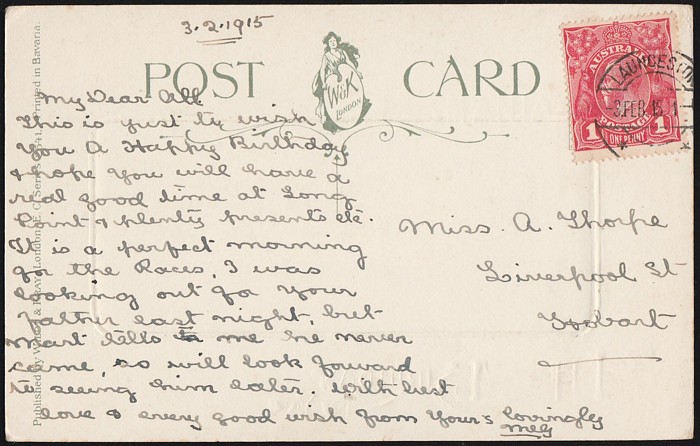 3.2.1915
POST CARD
W&K
LONDON
AUSTRALIA
POSTAGE
1 1
ONE PENNY
LAUNCESTON
3 FEB 15
My Dear All
This is just to wish
You A Happy Birthday
& hope you will have a
real good time at Long
Point & plenty presents etc.
It is a perfect morning
for the Races, I was
looking out for your
Father last night, but
Mart tells me he never
came, so will look foward
to seeing him later. With best
love & every good wish from Your's lovingly
Meg
Miss A. Thorpe
Liverpool St
Hobart
Published by Wildt & Kray, London, E.C. Series Printed in Bavaria.